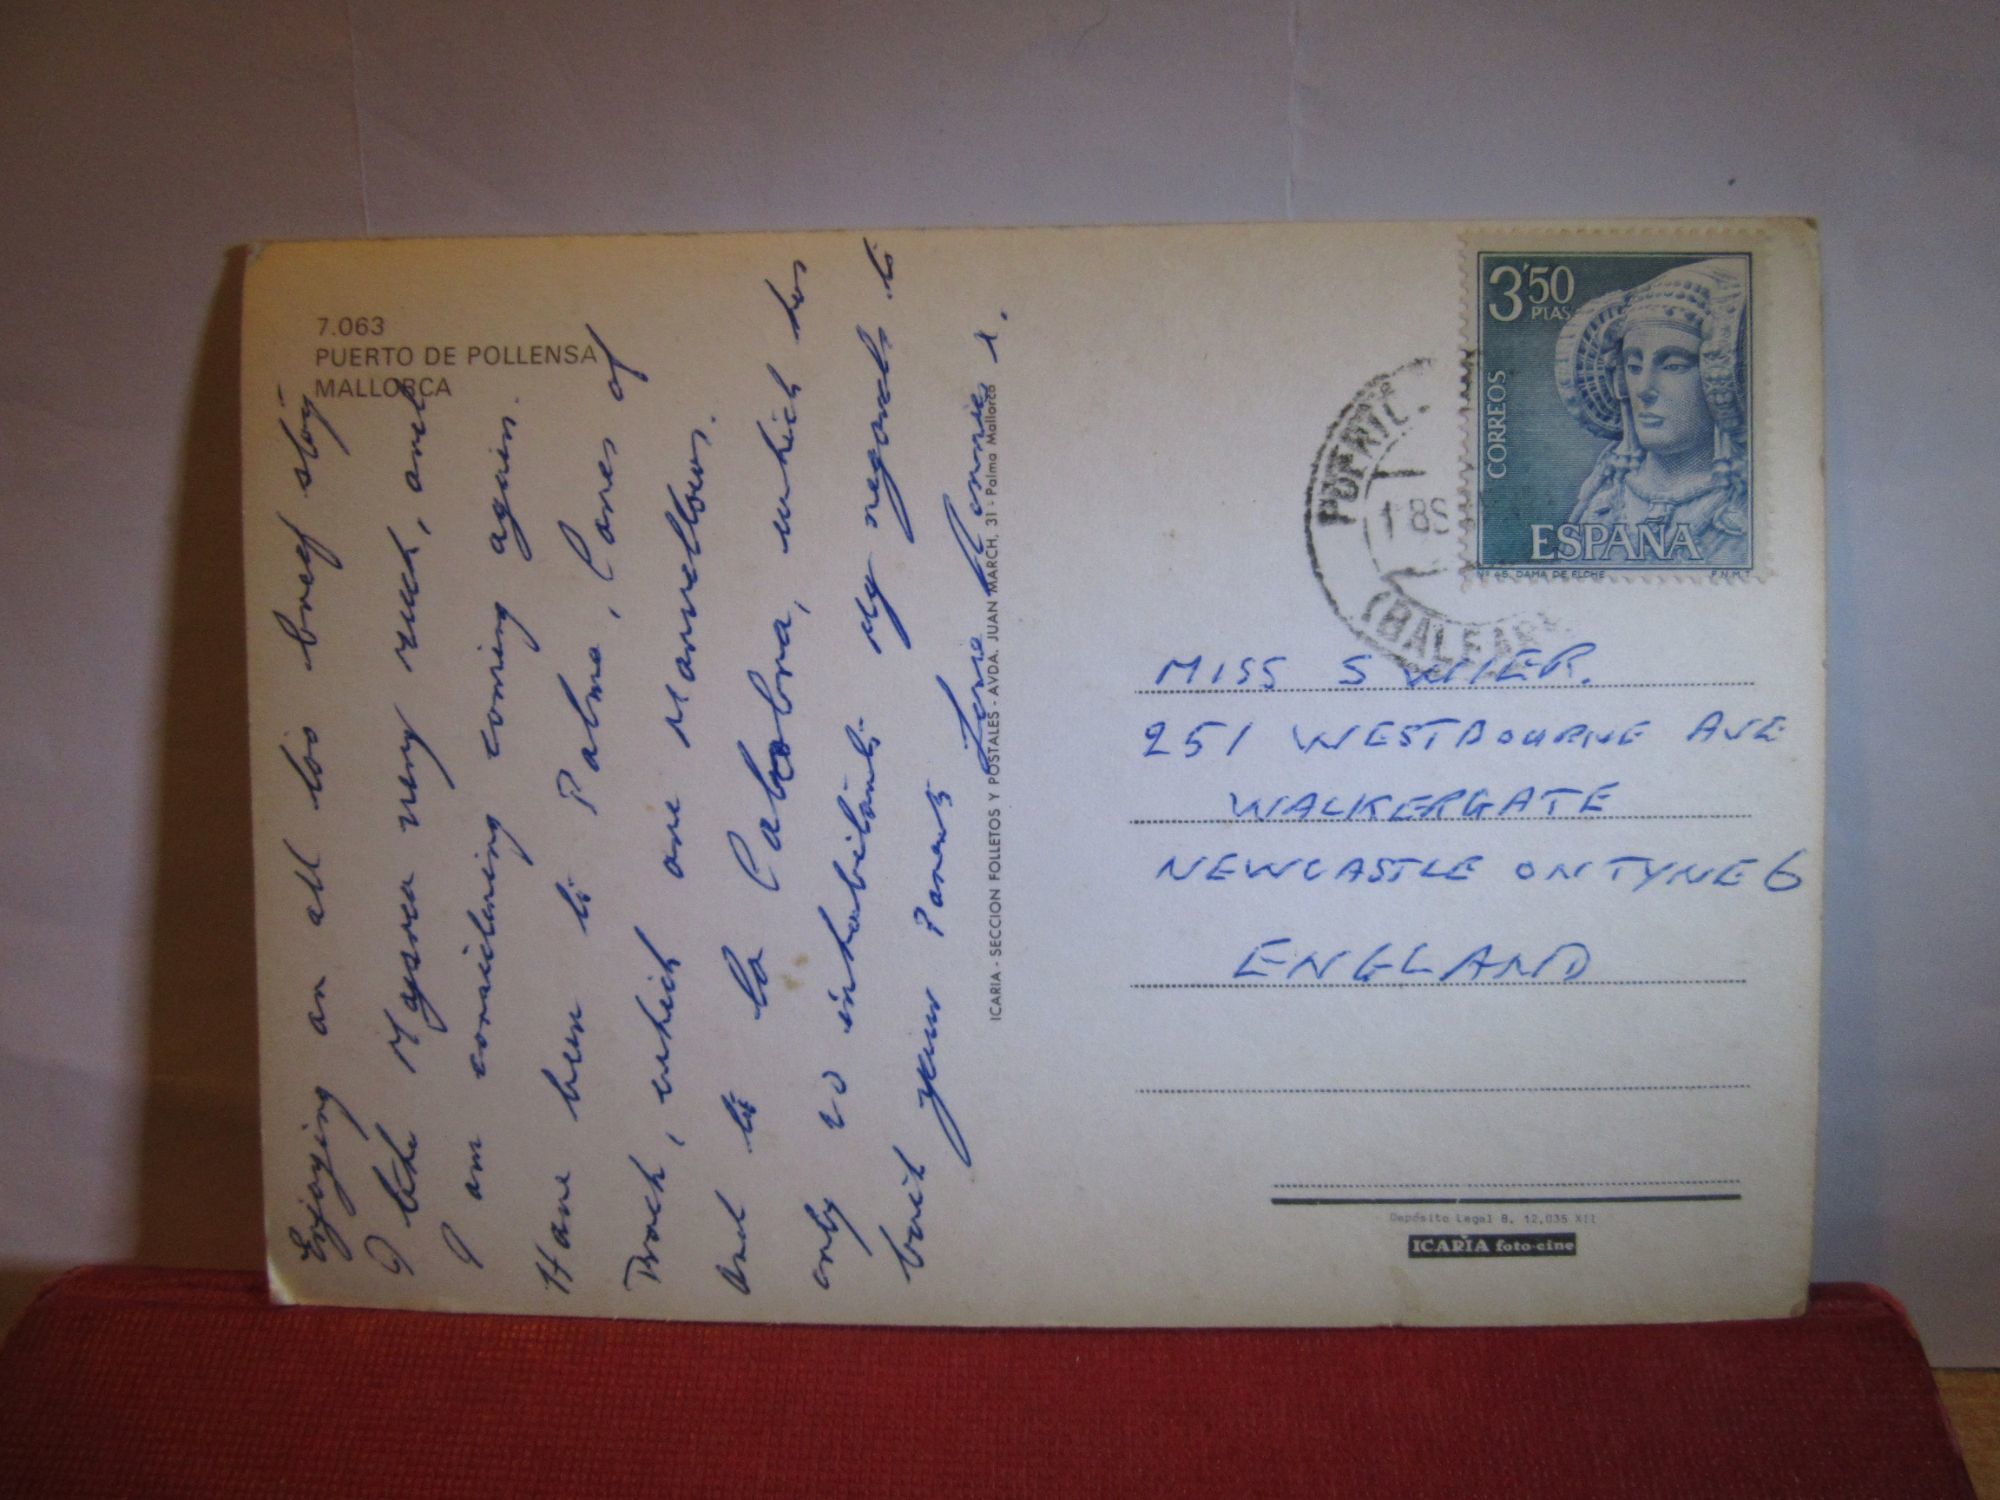 7.063
PUERTO DE POLLENSA
MALLORCA
Enjoying an all too brief stay
I like Majorca very much, and
I am considering coming again.
Have been to Palma, Caves of
Drach, which are Marvellous.
and to la Calobra, which has
only 20 inhabitants My regards to
both your Parents Love Connie x.
ICARIA - SECCION FOLLETOS Y POSTALES - AVDA. JUAN MARCH, 31 - Palma Mallorca
3'50
PTAS
CORREOS
ESPAÑA
Nº 45. DAMA DE ELCHE F.N.M.T
(BALEARE
MISS S WIER.
251 WESTBOURNE AVE
WALKERGATE
NEWCASTLE ON TYNE 6
ENGLAND
Depósito Legal B. 12,035 XII
ICARIA foto-cine